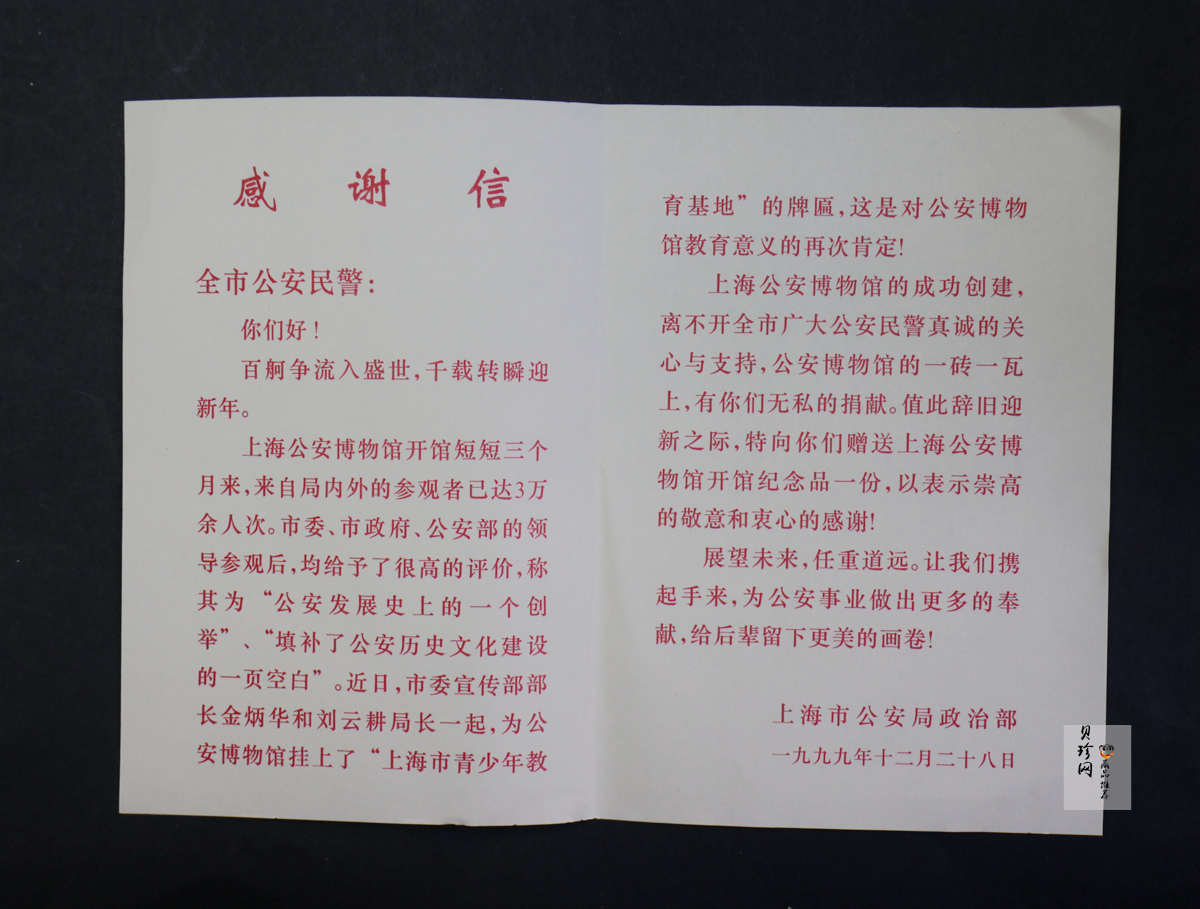 感谢信
全市公安民警：
你们好！
百舸争流入盛世，千载转瞬迎
新年。
上海公安博物馆开馆短短三个
月来，来自局内外的参观者已达3万
余人次。市委、市政府、公安部的领
导参观后，均给予了很高的评价，称
其为“公安发展史上的一个创
举”、“填补了公安历史文化建设
的一页空白”。近日，市委宣传部部
长金炳华和刘云耕局长一起，为公
安博物馆挂上了“上海市青少年教
育基地”的牌匾，这是对公安博物
馆教育意义的再次肯定！
上海公安博物馆的成功创建，
离不开全市广大公安民警真诚的关
心与支持，公安博物馆的一砖一瓦
上，有你们无私的捐献。值此辞旧迎
新之际，特向你们赠送上海公安博
物馆开馆纪念品一份，以表示崇高
的敬意和衷心的感谢！
展望未来，任重道远。让我们携
起手来，为公安事业做出更多的奉
献，给后辈留下更美的画卷！
上海市公安局政治部
一九九九年十二月二十八日
贝珍网
藏品推荐